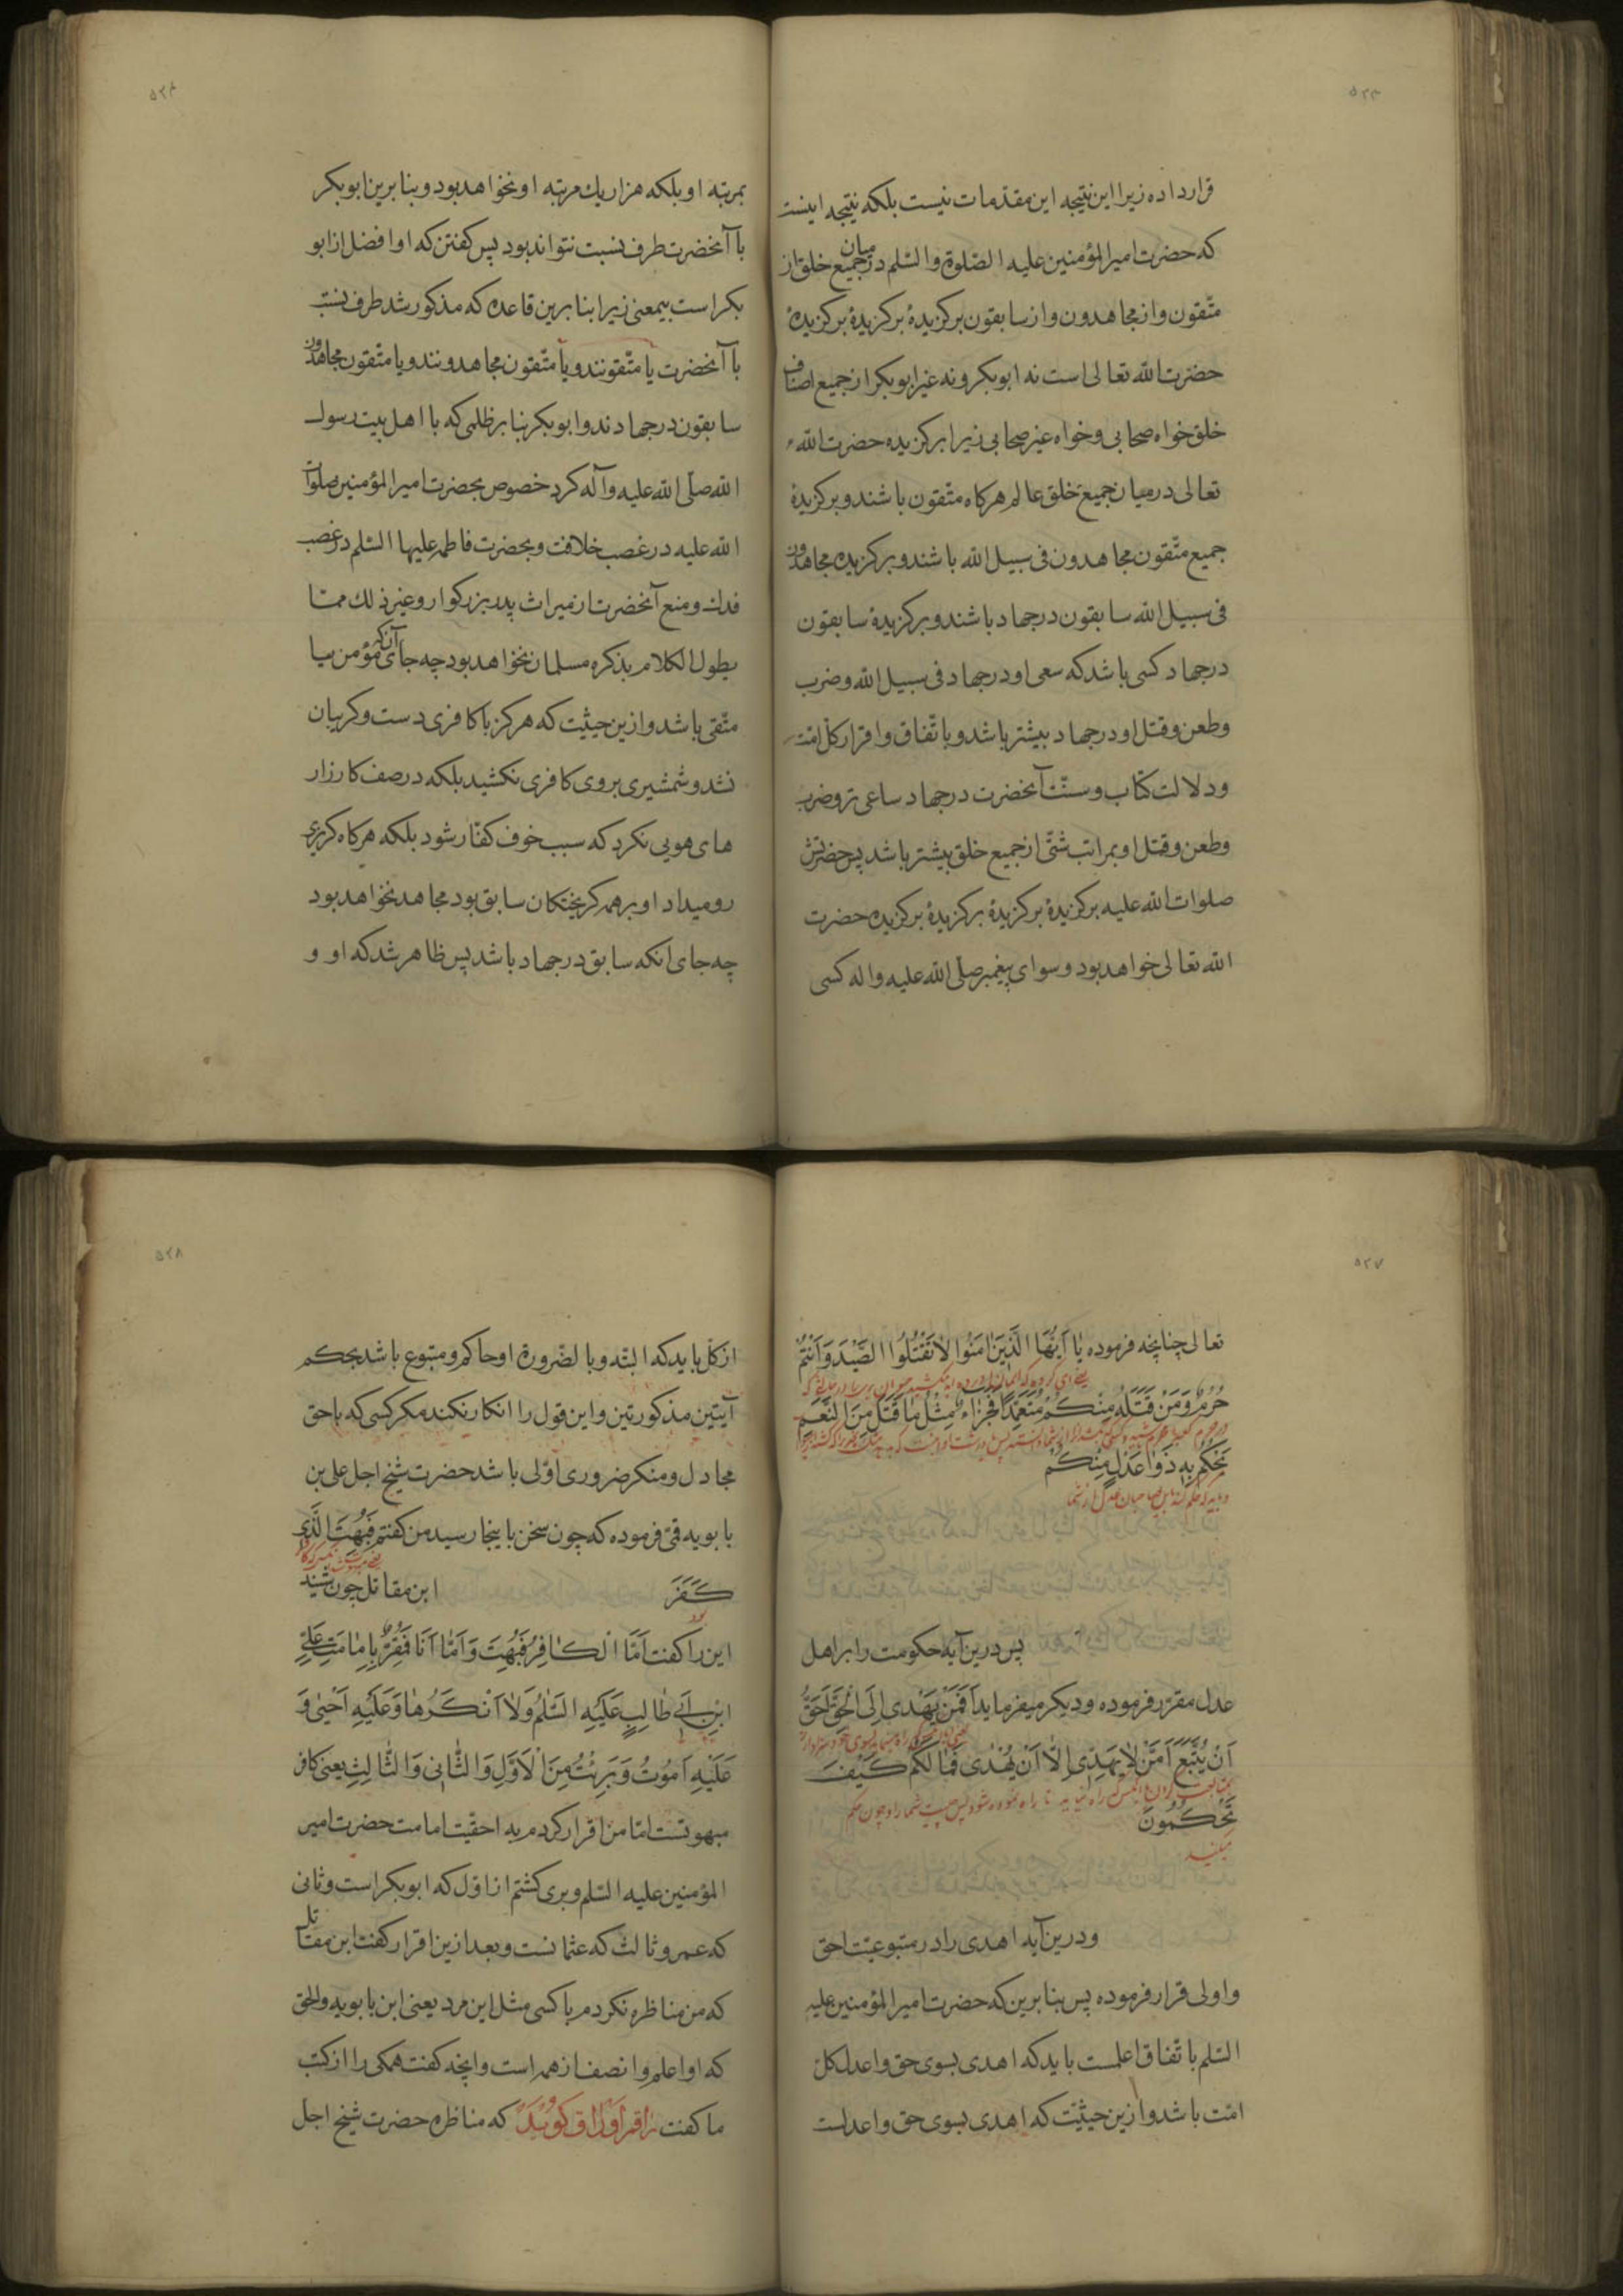 ۵۲۳
قرارداده زیرا این نتیجه این مقدمات نیست بلکه نتیجه اینست
که حضرت امیرالمؤمنین علیه الصّلوة والسّلم در میان جمیع خلق از
متّقون واز مجاهدون واز سابقون برکزیدهٔ برکزیدهٔ برکزیدهٔ
حضرت الله تعالی است نه ابوبکر ونه غیر ابوبکر از جمیع اصناف
خلق خواه صحابی وخواه غیر صحابی زیرا برکزیده حضرت الله
تعالی در میان جمیع خلق عالم هرکاه متّقون باشند وبرکزیدهٔ
جمیع متّقون مجاهدون فی سبیل الله باشند وبرکزیده مجاهدون
فی سبیل الله سابقون در جهاد باشند وبرکزیدهٔ سابقون
در جهاد کسی باشد که سعی او در جهاد فی سبیل الله وضرب
وطعن وقتل او در جهاد بیشتر باشد وباتّفاق واقرار کلّ امّت
ودلالت کتاب وسنّت آنحضرت در جهاد ساعی تر وضرب
وطعن وقتل او بمراتب شتّی از جمیع خلق بیشتر باشد پس حضرتش
صلوات الله علیه برکزیدهٔ برکزیدهٔ برکزیدهٔ برکزیده حضرت
الله تعالی خواهد بود وسوای پیغمبر صلّی الله علیه واله کسی
۵۲۴
بمرتبه او بلکه هزار یك مرتبه او نخواهد بود وبنابرین ابوبکر
با آنحضرت طرف نسبت نتواند بود پس کفتن که او افضل از ابو
بکر است بیمعنی زیرا بنابرین قاعده که مذکور شد طرف نسبت
با آنحضرت یا متّقونند ویا متّقون مجاهدونند ویا متّقون مجاهدون
سابقون در جهادند وابوبکر بنابر ظلمی که با اهل بیت رسول
الله صلّی الله علیه وآله کرد خصوص بحضرت امیرالمؤمنین صلوات
الله علیه در غصب خلافت وبحضرت فاطمه علیها السّلم در غصب
فدك ومنع آنحضرت از میراث پدر بزرکوار وغیر ذلك ممّا
یطول الکلام بذکره مسلمان نخواهد بود چه جای آنکه مؤمن یا
متّقی باشد وازین حیثیّت که هرکز با کافری دست وکریبان
نشد وشمشیری بروی کافری نکشید بلکه در صف کارزار
های هویی نکرد که سبب خوف کفّار شود بلکه هرکاه کریزی
رومیداد او بر همه کریختکان سابق بود مجاهد نخواهد بود
چه جای انکه سابق در جهاد باشد پس ظاهر شد که او و
۵۲۷
تعالی چنانچه فرموده یٰا اَیُّهَا الَّذینَ اٰمَنُوا لاٰ تَقْتُلُوا الصَّیْدَ وَاَنْتُمْ
حُرُمٌ وَمَنْ قَتَلَهُ مِنْکُمْ مُتَعَمِّداً فَجَزٰاءٌ مِثْلُ مٰا قَتَلَ مِنَ النَّعَمِ
یَحْکُمُ بِهِ ذَوٰا عَدْلٍ مِنْکُمْ
پس درین آیه حکومت را بر اهل
عدل مقرّر فرموده ودیکر میفرماید اَفَمَنْ یَهْدی اِلَی الْحَقِّ اَحَقُّ
اَنْ یُتَّبَعَ اَمَّنْ لاٰ یَهِدّی اِلّاٰ اَنْ یُهْدٰی فَمٰا لَکُمْ کَیْفَ
تَحْکُمُونَ
میکنید
ودرین آیه اهدی را در متبوعیّت احق
واولی قرار فرموده پس بنابرین که حضرت امیرالمؤمنین علیه
السّلم باتّفاق اعلمست باید که اهدی بسوی حق واعدل کلّ
امّت باشد وازین حیثیّت که اهدی بسوی حق واعدلست
۵۲۸
از کلّ باید که البتّه وبالضّرورة او حاکم ومتبوع باشد بحکم
آیتین مذکورتین واین قول را انکار نکند مکر کسی که با حق
مجادل ومنکر ضروری اوّلی باشد حضرت شیخ اجل علی بن
بابویه قمّی فرموده که چون سخن باینجا رسید من کفتم فَبُهِتَ الَّذی
کَفَرَ ابن مقاتل چون شنید
این را کفت اَمَّا الْکٰافِرُ فَبُهِتَ وَاَمّٰا اَنَا فَمُقِرٌّ بِاِمٰامَتِ عَلِیِّ
ابْنِ اَبی طٰالِبٍ عَلَیْهِ السَّلٰمُ وَلاٰ اَنْکَرُهٰا وَعَلَیْهِ اَحْیٰی وَ
عَلَیْهِ اَمُوتُ وَبَرِئْتُ مِنَ الْاَوَّلِ وَالثّٰانی وَالثّٰالِثِ یعنی کافر
مبهوتست امّا من اقرار کردم به احقیّت امامت حضرت امیر
المؤمنین علیه السّلم وبری کشتم از اوّل که ابوبکر است وثانی
که عمر وثالث که عثمانست وبعد ازین اقرار کفت ابن مقاتل
که من مناظره نکردم با کسی مثل این مرد یعنی ابن بابویه والحق
که او اعلم وانصف از همه است وانچه کفت همکی را از کتب
ما کفت راقم اوراق کوید که مناظره حضرت شیخ اجل